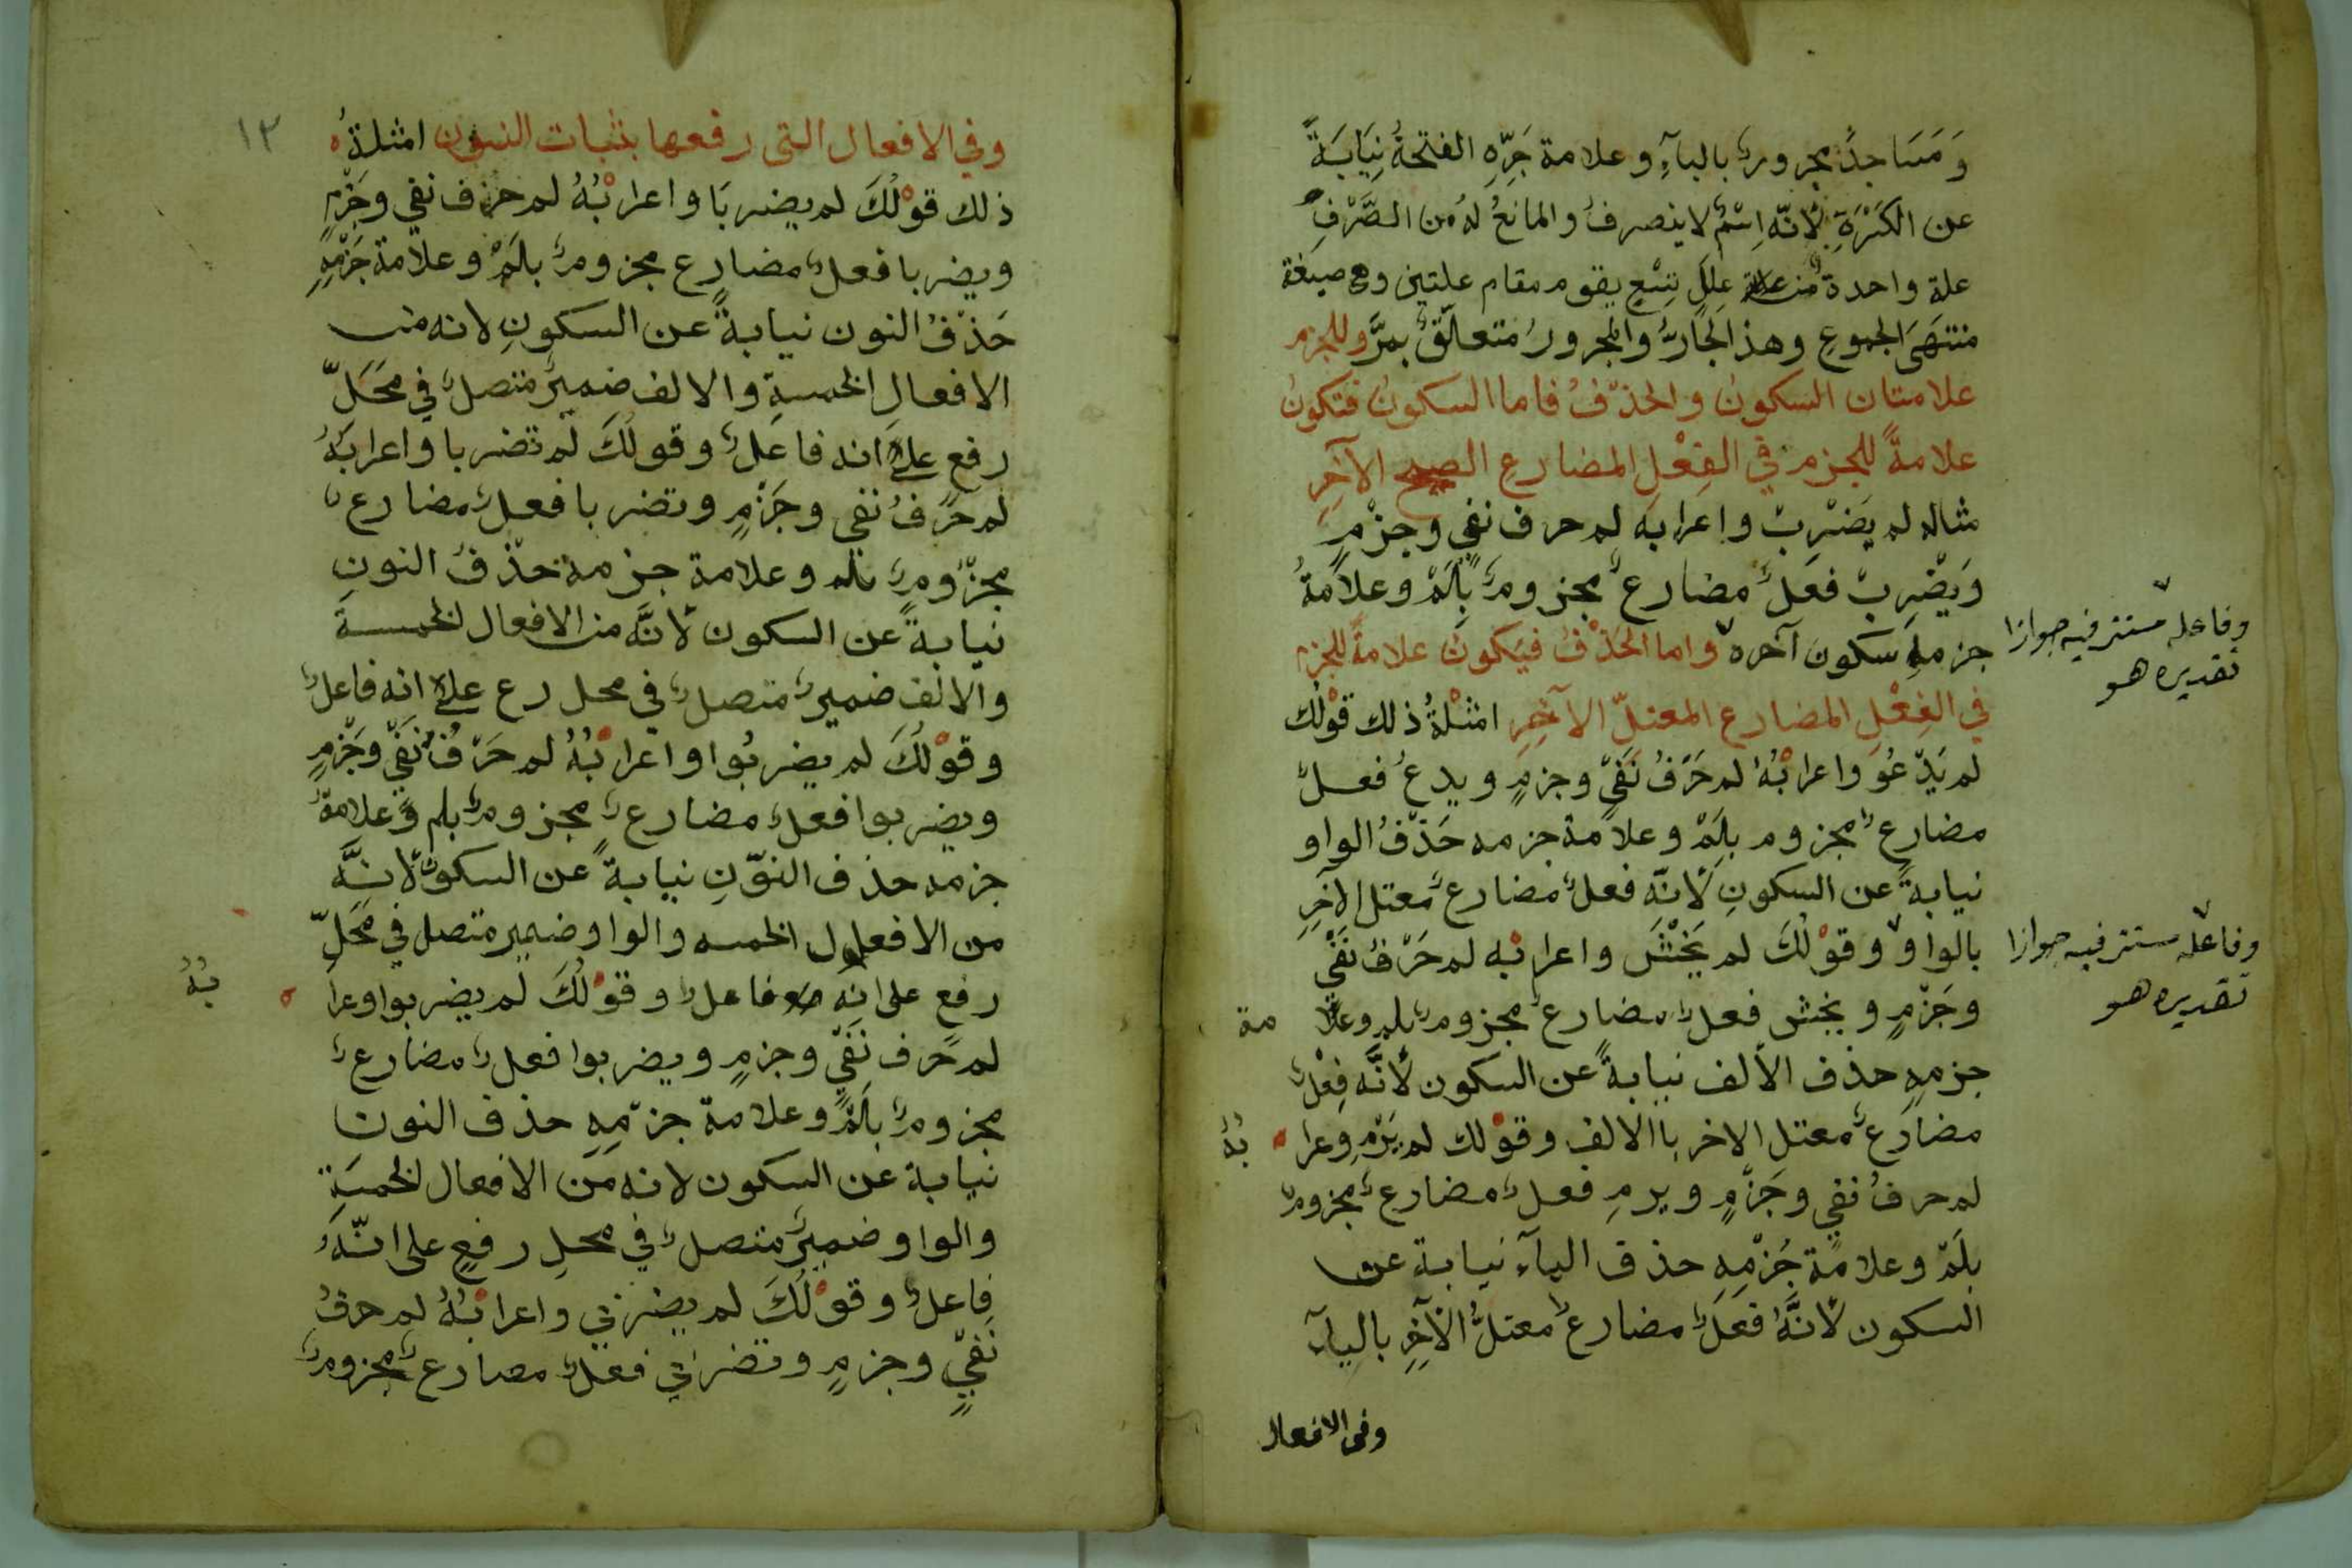 وَمَسَاجِدَ مجرورٌ بالبآءِ وعلامة جَرِّهِ الفتحةُ نِيَابَةً
عن الكَسْرَةِ لِأنّه اِسْمٌ لا ينصرفُ والمانعُ لهُ من الصَّرْفِ
علة واحدة من علل تِسْعٍ يقوم مقام علتين وهي صيغة
منتهَى الجموعِ وهذ الجَارُّ والمجرورُ متعلّقٌ بمرَّ وللجزم
علامتان السكونُ والحذْفُ فاما السكونُ فتكونُ
علامةً للجزم في الفِعْلِ المضارعِ الصحيح الآخِرِ
مثاله لم يَضْرِبْ واعرابه لم حرف نفيٍ وجزْمٍ
وَيَضْرِبْ فعلٌ مضارعٌ مجزومٌ بِلَمْ وعلامةُ
جزمهِ سكونَ آخره واما الحَذْفُ فيَكونُ علامةً للجزم
وفاعله مستتر فيه جوازا
تقديره هو
في الفِعْلِ المضارع المعتلّ الآخِرِ امْثلةُ ذلك قوْلك
لم يَدْعُوَ واعرابُهُ لم حَرْفُ نَفْيٍ وجزمٍ ويدعُ فعلٌ
مضارعٌ مجزوم بِلَمْ وعلامة جزمه حَذْفُ الواو
نيابةً عن السكونِ لأنّه فعلٌ مضارعٌ معتل الآخِرِ
بالواو وقوْلُكَ لم يَخْشَ واعرابُه لم حَرْفُ نَفْيٍ
وفاعله مستتر فيه جوازا
تقديره هو
وجَزْمٍ ويخش فعلٌ مضارعٌ مجزومٌ بلم وعلا مة
جزمهِ حذف الألف نيابةً عن السكون لأنَّه فِعْلٌ
مضارعٌ معتل الاخر باالالف وقوْلك لم يَرْمِ وعرا بُهُ
لم حرفُ نفيٍ وجَزْمٍ ويرمِ فعلٌ مضارعٌ مجزومٌ
بلَمْ وعلامة جَزْمِهِ حذف اليآء نيابة عن
السكون لأنَّهُ فعلٌ مضارعٌ معتلُّ الآخِرِ باليآء
وفى الافعال
١٣
وفي الافعال التى رفعها بثبات النون امثلةُ
ذلك قوْلُكَ لم يضربَا واعرابُهُ لم حرف نفي وجَزْمٍ
ويضربا فعلٌ مضارع مجزومٌ بلَمْ وعلامة جَزْمِهِ
حَذْفُ النون نيابةً عن السكونِ لانه من
الافعالِ الخمسةِ والالف ضميرٌ متصلٌ في مَحَلّ
رفعٍ علىٰ انه فاعلٌ وقولُكَ لم تضربا واعرابُهُ
لم حرفُ نفي وجَزْمٍ وتضربا فعلٌ مضارعٌ
مجزومٌ بلم وعلامة جزمه حذْفُ النونِ
نيابةً عن السكون لأنَّه من الافعال الخمسة
والالف ضميرٌ متصلٌ في محل رع علىٰ انه فاعلٌ
وقوْلُكَ لم يضربُوا واعرابُهُ لم حَرْفُ نَفْيٍ وجَزْمٍ
ويضربوا فعلٌ مضارعٌ مجزومٌ بلم وعلامةُ
جزمه حذف النوْنِ نيابةً عن السكون لأنَّه
من الافعال الخمسه والواو ضمير متصل في مَحَلِّ
رفع على انه فاعلٌ وقوْلُكَ لم يضربوا وعرا بُهُ
لم حرف نَفْيٍ وجزمٍ ويضربوا فعلٌ مضارعٌ
مجزومٌ بلَمْ وعلامة جزمِهِ حذف النون
نيابة عن السكون لانه من الافعال الخمسَةِ
والواو ضميرٌ متصلٌ في محلِ رفعٍ على انّهُ
فاعلٌ وقوْلُكَ لم يضربي واعرابُهُ لم حرفُ
نَفْيٍ وجزمٍ وتضربي فعلٌ مضارعٌ مجزومٌ